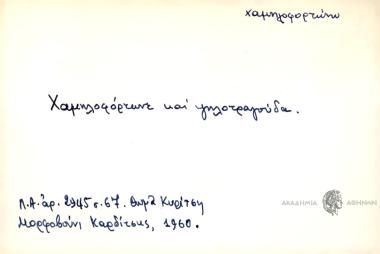 χαμηλοφορτώνω
Χαμηλοφόρτωνε καὶ ψηλοτραγούδα.
Λ.Α. ἀρ. 2945 σ. 67. Θωμᾶ Κυρίτση
Μορφοβούνι Καρδίτσης, 1960.
ΑΚΑΔΗΜΙΑ ΑΘΗΝΩΝ